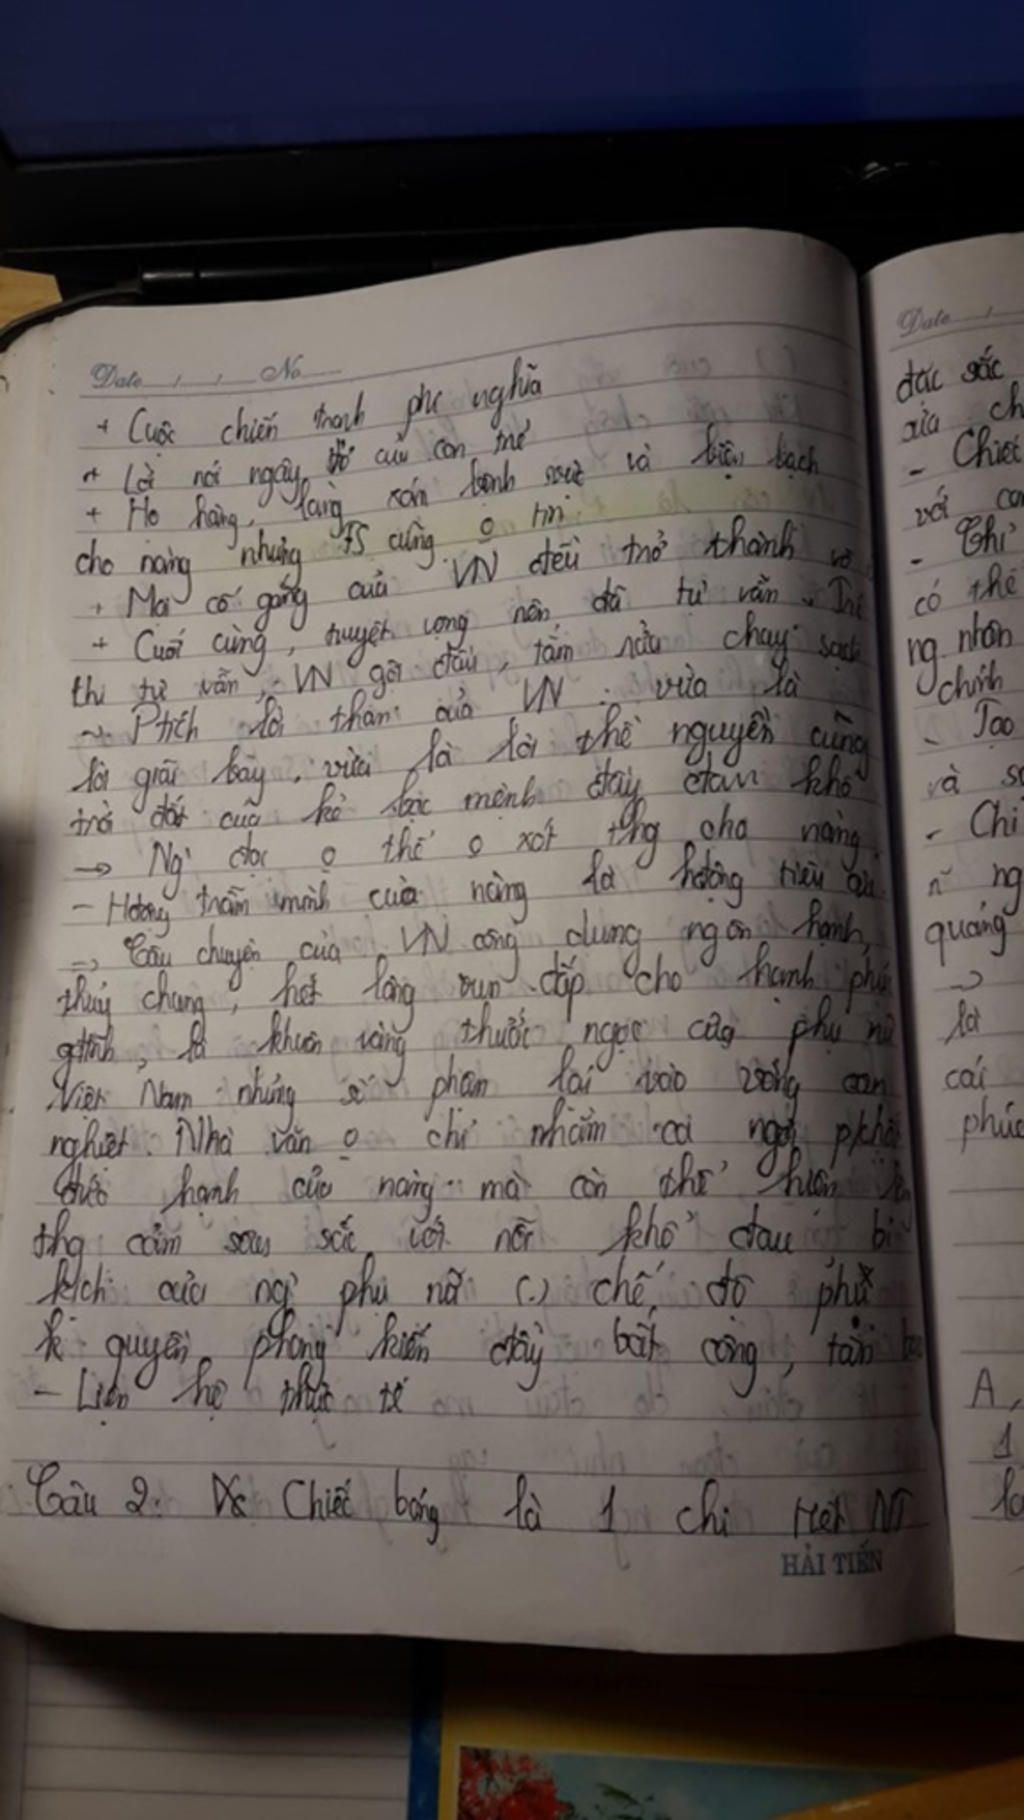 Date No
+ Cuộc chiến tranh phi nghĩa
+ Lời nói ngây thơ của con trẻ
+ Họ hàng, làng xóm bênh vực và biện bạch
cho nàng nhưng TS cũng o tin
+ Mọi cố gắng của VN đều trở thành vô
+ Cuối cùng, tuyệt vọng nên đã tự vẫn. Trc
khi tự vẫn, VN gội đầu, tắm rửa chay sạch
~ Ptích lời than của VN: vừa là
lời giãi bày, vừa là lời thề nguyền cùng
trời đất của kẻ bạc mệnh đầy đau khổ
-> Ng' đọc o thể o xót thg cho nàng.
- Hđộng trẫm mình của nàng là hđộng tiêu cực
=> Câu chuyện của VN công dung ngôn hạnh,
thủy chung, hết lòng vun đắp cho hạnh phúc
gđình, là khuôn vàng thước ngọc của phụ nữ
Việt Nam nhưng phận lại vào vòng oan
nghiệt. Nhà văn o chỉ nhằm ca ngợi p/chất
đức hạnh của nàng mà còn thể hiện
thg cảm sâu sắc với nỗi khổ đau bi
kịch của ng' phụ nữ (.) chế độ phụ
k quyền phong kiến đầy bất công, tàn
- Liên hệ thực tế
Câu 2: Chiếc bóng là 1 chi tiết NT
HẢI TIẾN
Date
đặc sắc
của ch
- Chiếc
với con
- Chi
có thể
ng nhân
chính
- Tạo
và
- Chi
ng
quáng
->
là
cái
phúc
A,
1